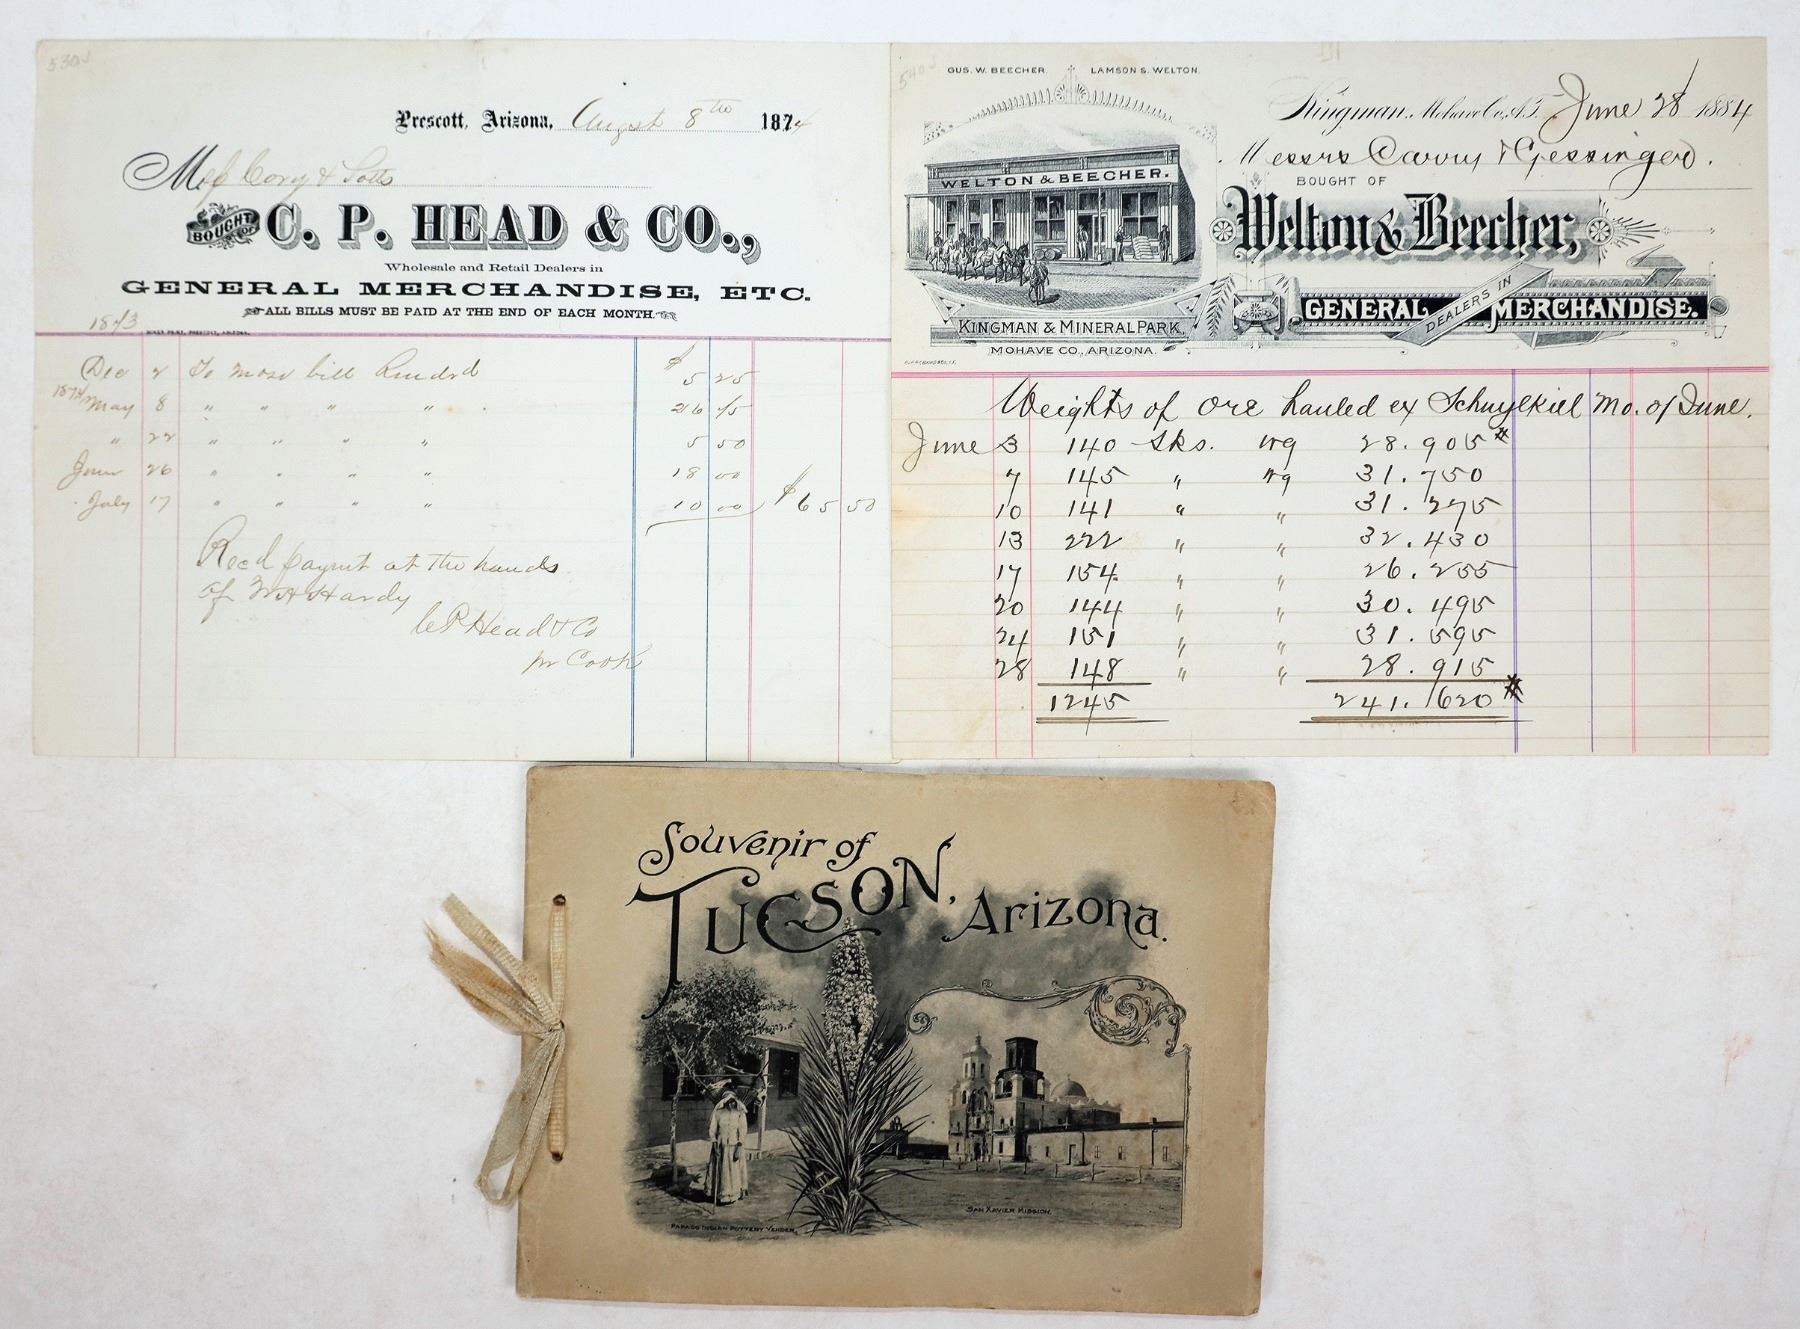 5305
Prescott, Arizona, August 8th 1874
Cory & Potts
BOUGHT OF
C. P. HEAD & CO.,
Wholesale and Retail Dealers in
GENERAL MERCHANDISE, ETC.
ALL BILLS MUST BE PAID AT THE END OF EACH MONTH.
1873
MINER PRINT, PRESCOTT, ARIZONA.
Dec 2 To mdse bill Rendrd $5 25
1874 May 8 " " " " 26 75
" 22 " " " " 5 50
June 26 " " " " 18 00
July 17 " " " " 10 00 $65 50
Recd paymt at the hands
of W H Hardy
C P Head & Co
pr Cook
5405
GUS. W. BEECHER. LAMSON S. WELTON.
WELTON & BEECHER.
KINGMAN & MINERAL PARK,
MOHAVE CO., ARIZONA.
Kingman, Mohave Co., A.T. June 28 1884
Messrs Cowy & Gessinger.
BOUGHT OF
Welton & Beecher,
DEALERS IN
GENERAL MERCHANDISE.
Weights of ore hauled ex Schuylkill Mo. of June.
June 3 140 sks. wg 28.905#
7 145 " wg 31.750
10 141 " " 31.275
13 222 " " 32.430
17 154 " " 26.255
20 144 " " 30.495
24 151 " " 31.595
28 148 " " 28.915
1245 241.620#
Souvenir of
TUCSON, Arizona.
PAPAGO INDIAN POTTERY VENDER.
SAN XAVIER MISSION.